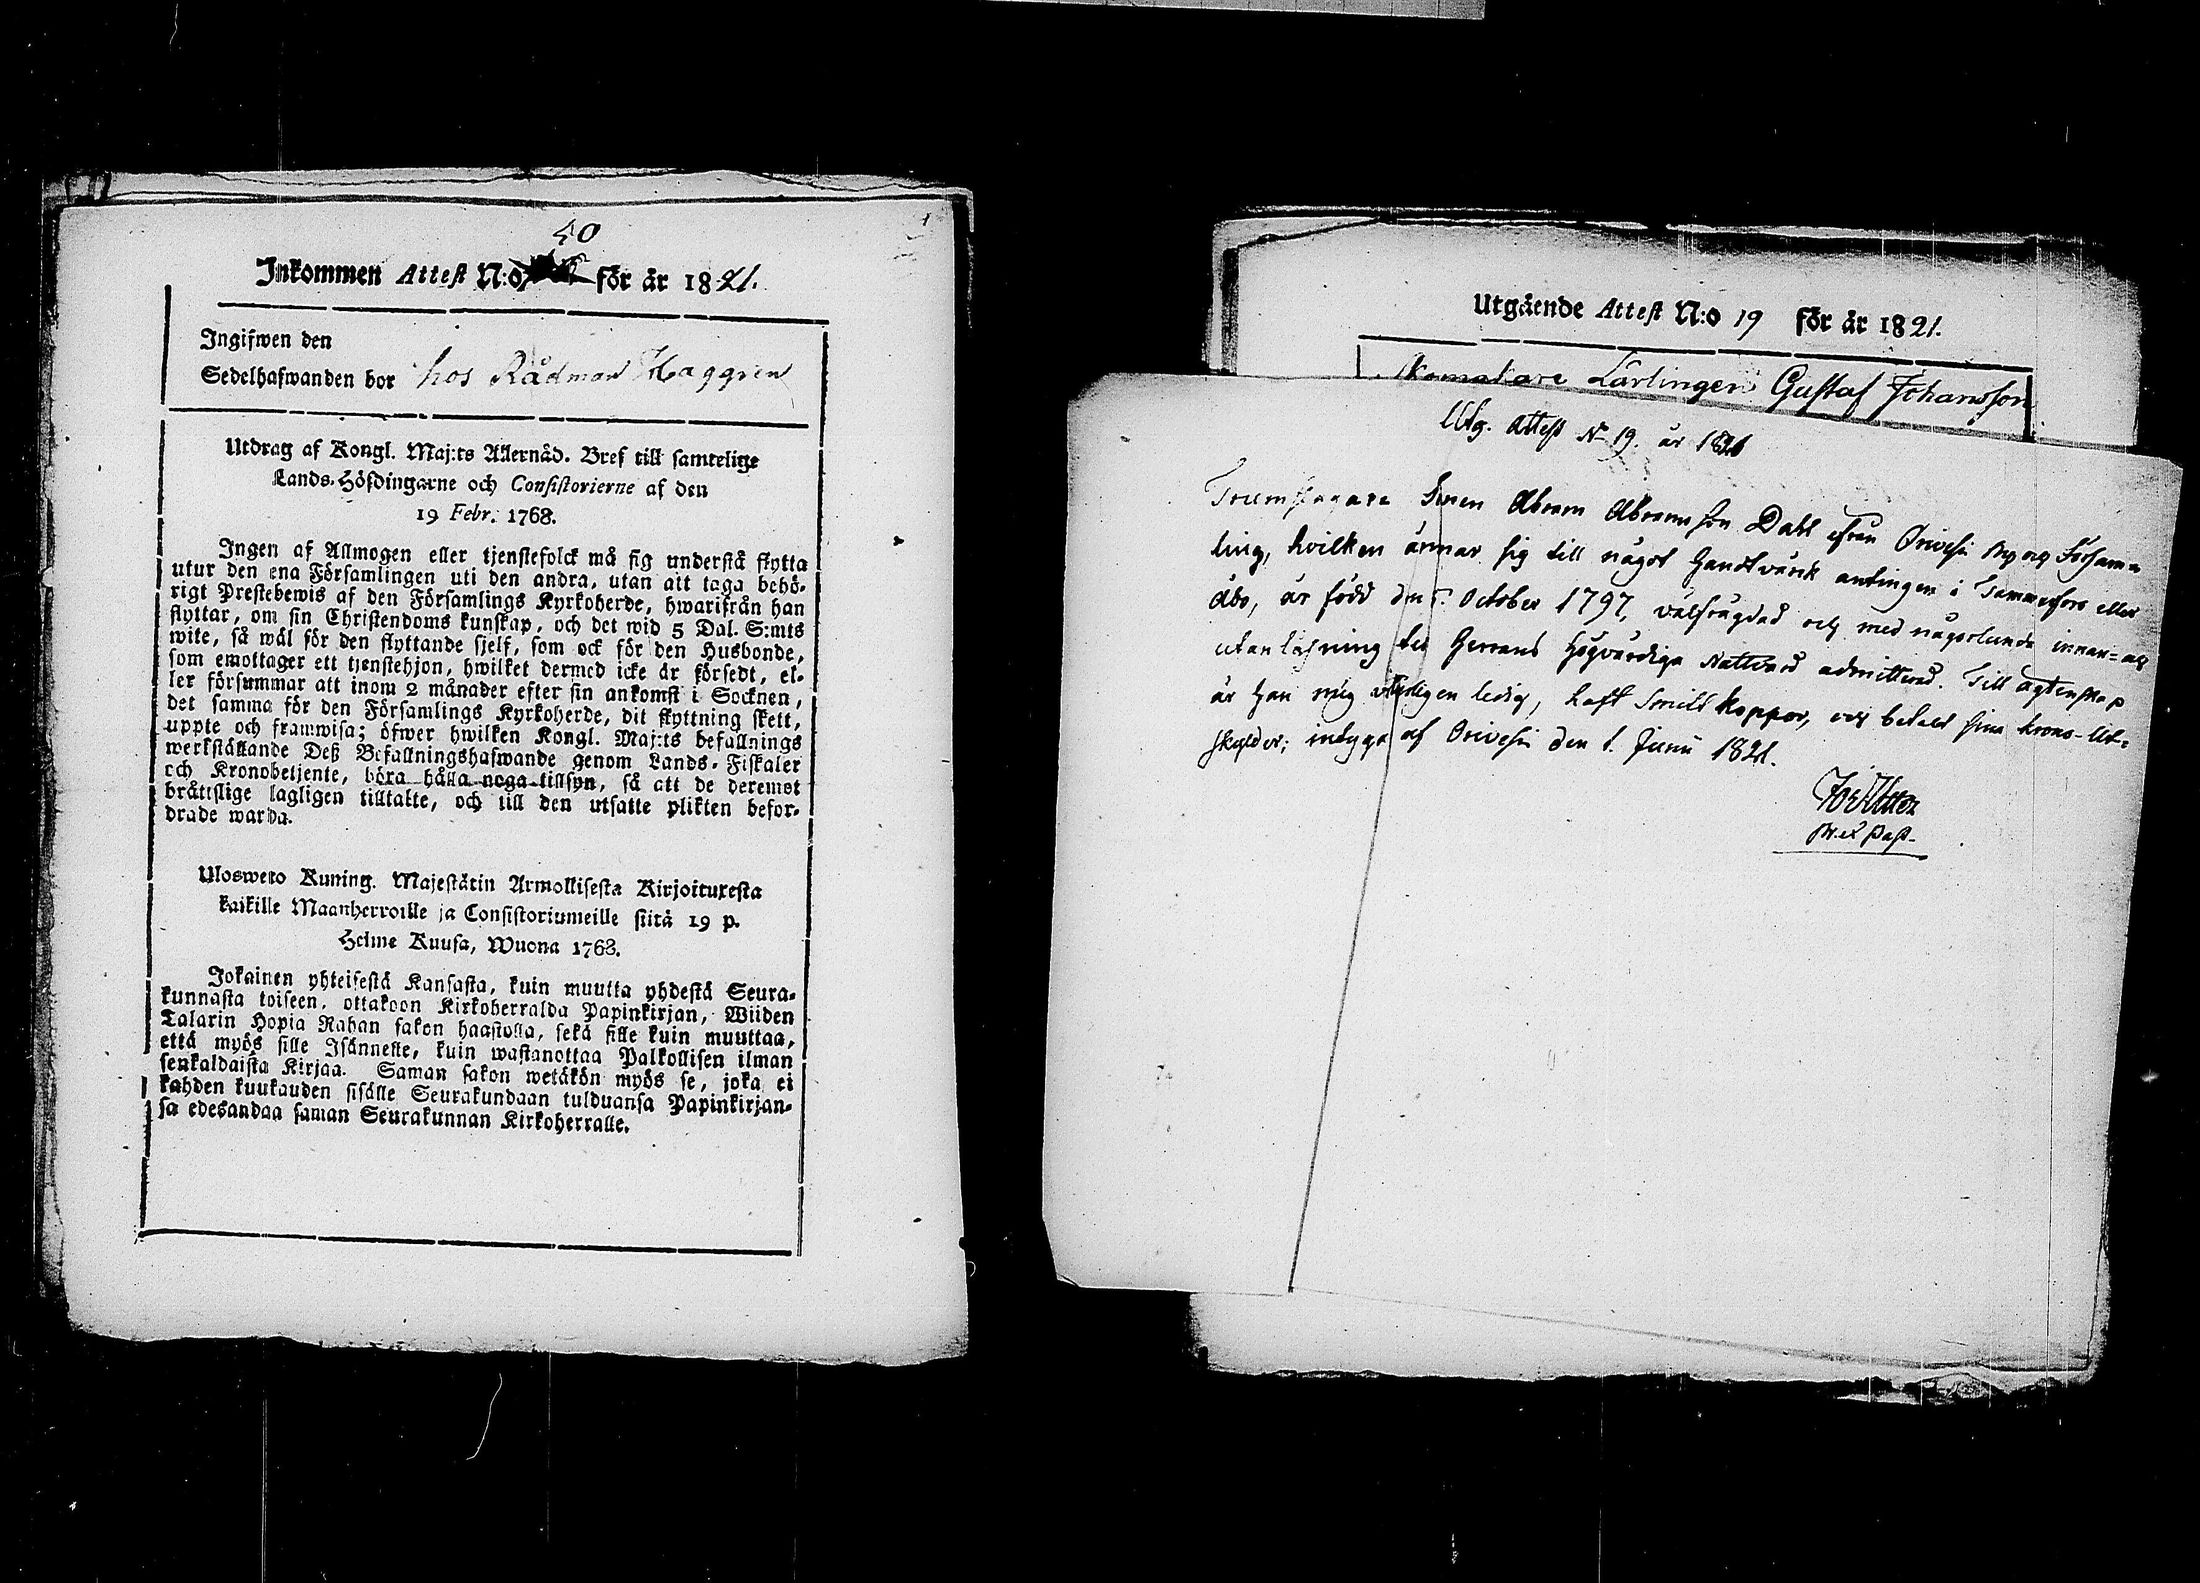 40
Inkommen Attest N:o för år 1821.
Ingifwen den
Sedelhafwanden bor hos Rådman Haggren
Utdrag af Kongl. Maj:ts Allernåd. Bref till samtelige
Lands-Höfdingarne och Consistorierne af den
19 Febr. 1768.
Ingen af Allmogen eller tjenstefolck må sig understå flytta
utur den ena Församlingen uti den andra, utan att taga behö-
rigt Prestebewis af den Församlings Kyrkoherde, hwarifrån han
flyttar, om sin Christendoms kunskap, och det wid 5 Dal. S:mts
wite, så wäl för den flyttande sjelf, som ock för den Husbonde,
som emottager ett tjenstehjon, hwilket dermed icke är försedt, el-
ler försummar att inom 2 månader efter sin ankomst i Socknen,
det samma för den Församlings Kyrkoherde, dit flyttning skett,
uppte och framwisa; öfwer hwilken Kongl. Maj:ts befallnings
werkställande Deß Befallningshafwande genom Lands-Fiskaler
och Kronobetjente, böra hålla noga tillsyn, så att de deremot
bråttslige lagligen tilltalte, och till den utsatte plikten befor-
drade warda.
Ulosweto Kuning. Majestätin Armollisesta Kirjoituxesta
kaikille Maanherroille ja Consistoriumeille siitä 19 p.
Helme Kuusa, Wuona 1768.
Jokainen yhteisestä Kansasta, kuin muutta yhdestä Seura-
kunnasta toiseen, ottakoon Kirkoherralda Papinkirjan, Wiiden
Talarin Hopia Rahan sakon haastolla, sekä sille kuin muuttaa,
että myös sille Isännelle, kuin wastanottaa Palkollisen ilman
senkaldaista Kirjaa. Saman sakon wetäkön myös se, joka ei
kahden kuukauden sisälle Seurakundaan tulduansa Papinkirjan-
sa edesandaa saman Seurakunnan Kirkoherralle.
Utgående Attest N:o 19 för år 1821.
Skomakare Lärlingen Gustaf Johansson
Utg. Attest N 19. år 1821
Trumslagare Sonen Abram Abramsson Dahl ifrån Orivesi By och Församm
ling, hvilken ärnar sig till något Handtvärk antingen i Tammerfors eller
Åbo, är född den October 1797, välfrägdad och med någorlunda innan- och
utanläsning till Herrans Högvärdiga Nattvard admitterad. Till ägtenskap
är han mig veterligen ledig, haft Smitt koppor, och betalt sina krono-Ut-
skylder; intygar af Orivesi den 1. Junii 1821.
Past.